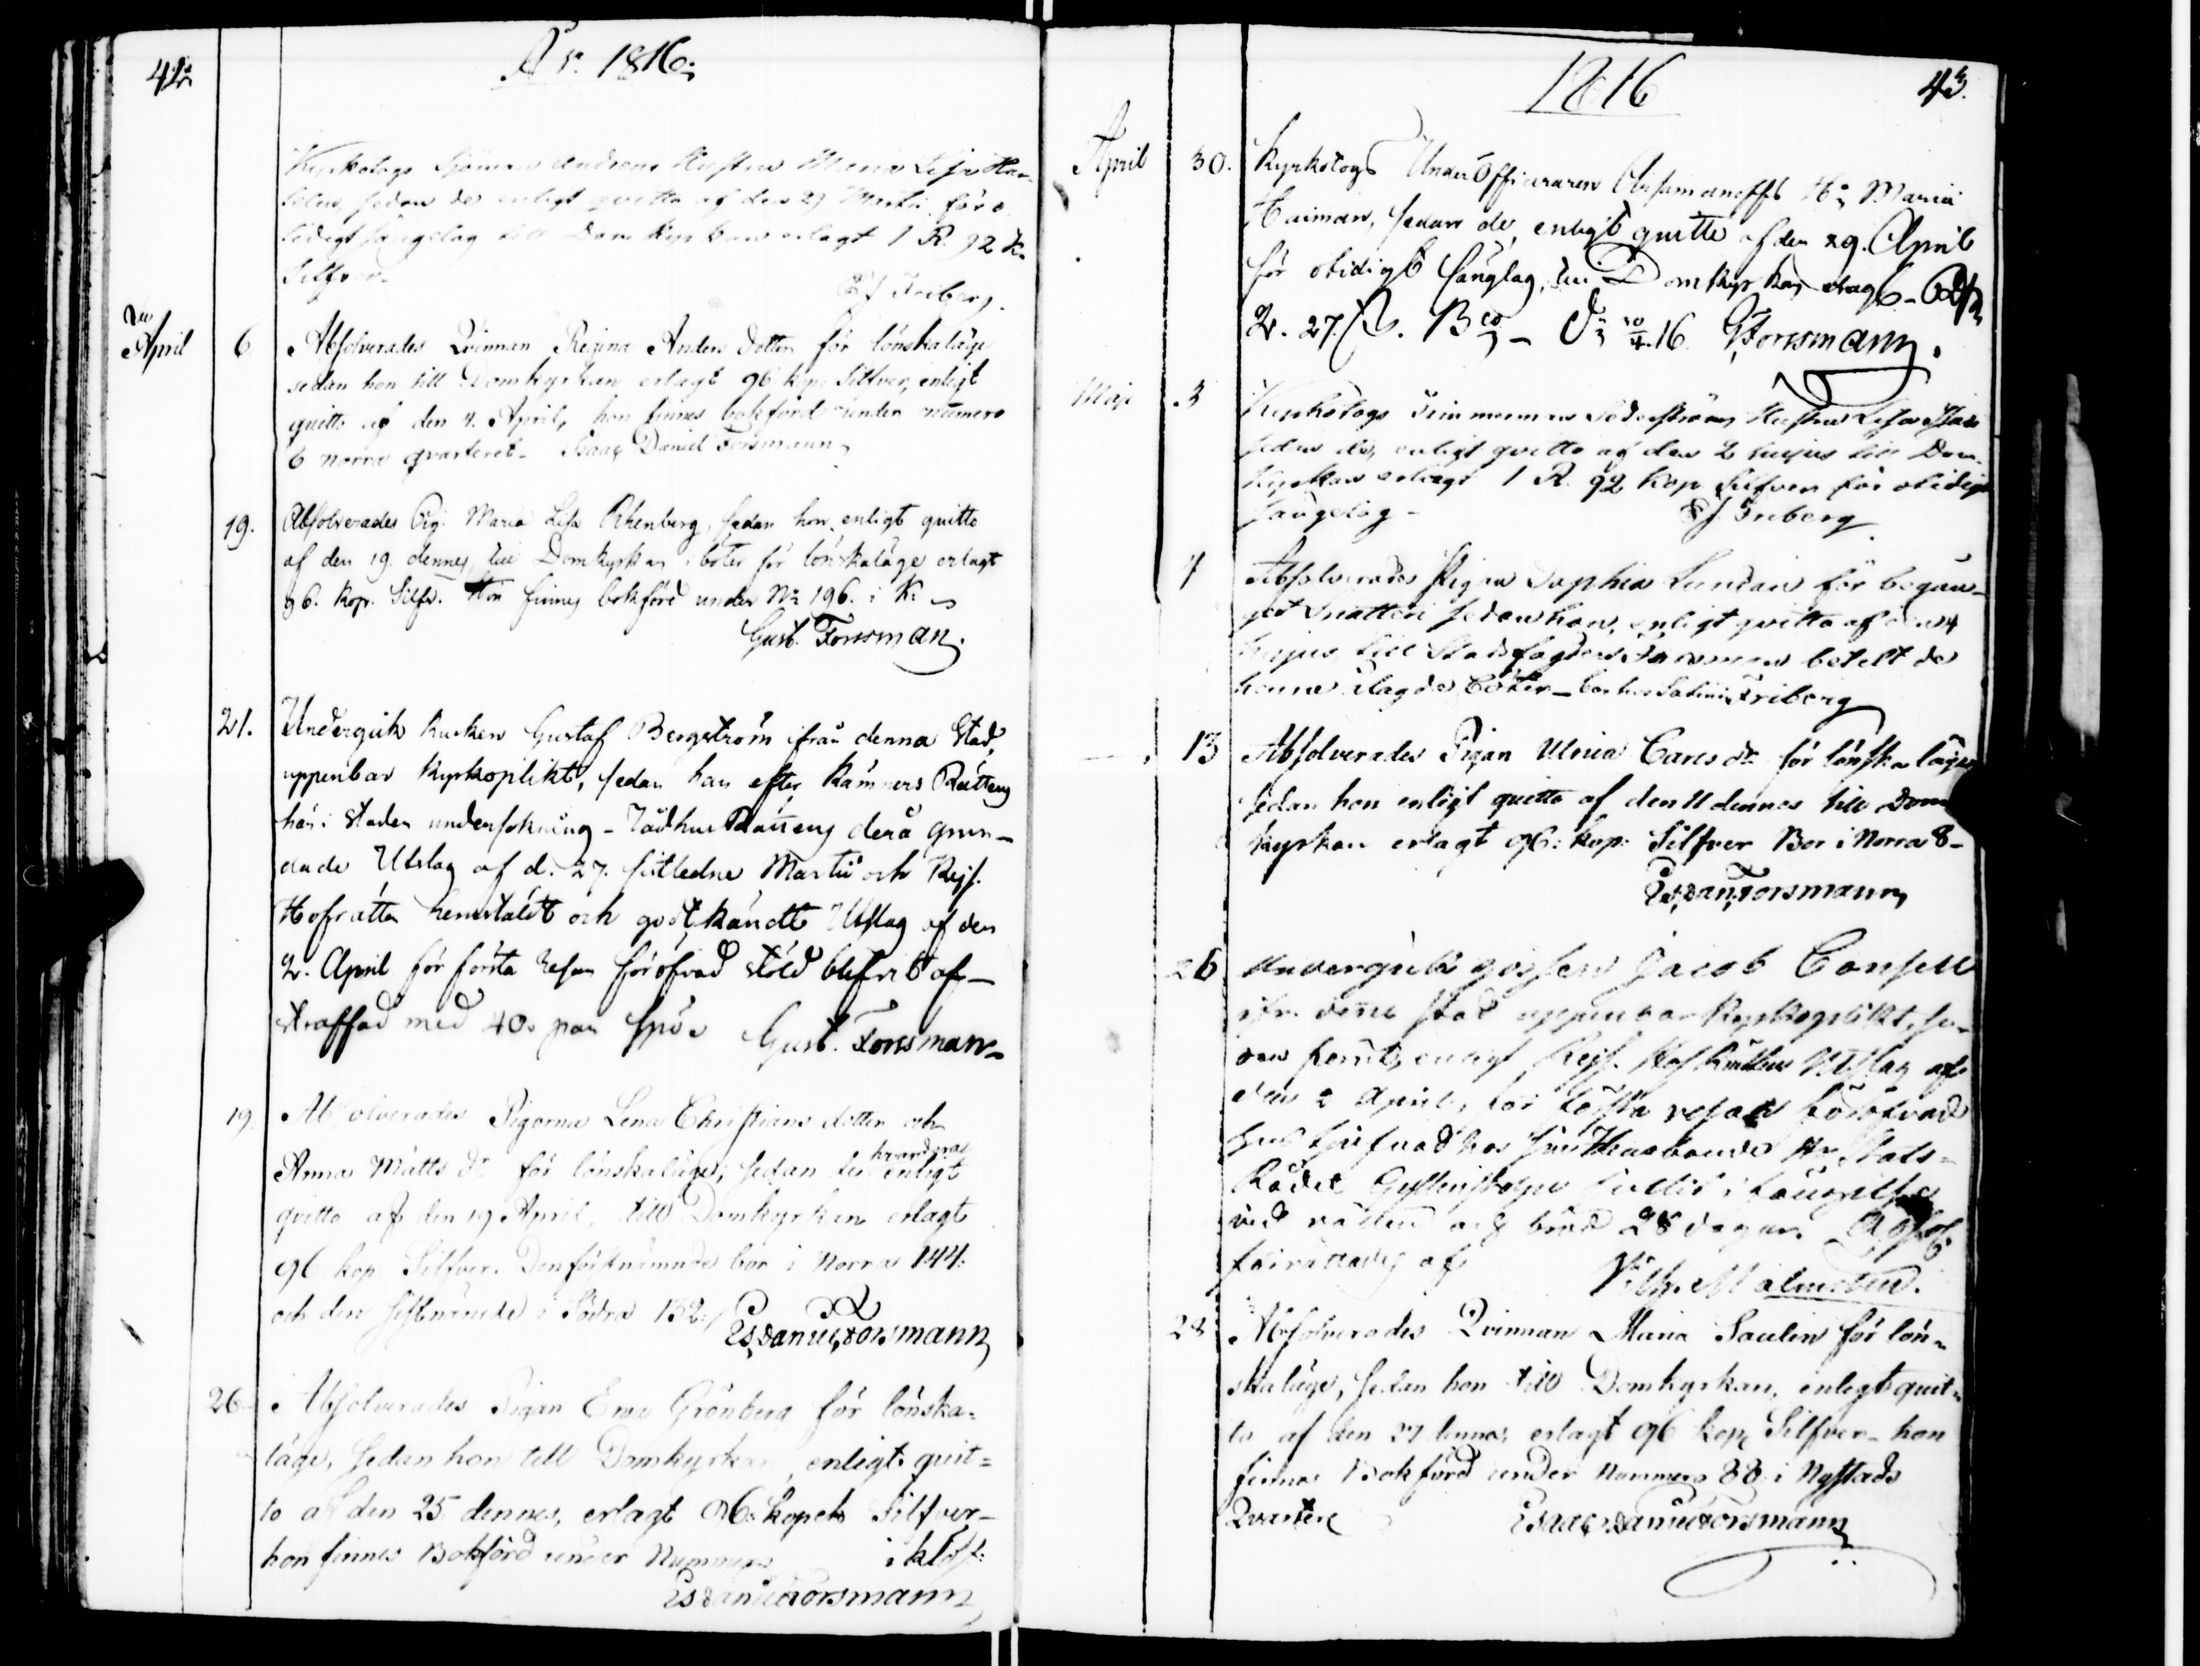 42.
År 1816.
Kyrkotogs Andrens Hustru Maria Lisa
sedan de enligt qvitto af den 29 Martii för o-
tidigt sängelag till Domkyrkan erlagt 1 R. 92 K.
Silfver.
Friberg.
April 6 Absolverades Qvinnan Regina Anders dotter för lönskaläge
sedan hon till Domkyrkan erlagt 96 kop. Silfver, enligt
quitto af den 4. April, hon finnes bokförd under numero
6 norra qvarteret. Isaac Daniel Forsmann
19. Absolverades Pig. Maria Lisa Ahenberg, sedan hon, enligt quitto
af den 19. dennes, till Domkyrkan i böter för lönskaläge erlagt
96. kop. Silfv. Hon finnes bokförd under No 196. i K.
Gust. Forssman.
21. Undergick kusken Gustaf Bergström ifrån denna Stad,
uppenbar kyrkoplikt, sedan han efter Kämners Rättens
här i Staden undersökning - Rådhus Rättens derå grun-
dade Utslag af d. 27. sistledne Martii och Kejs.
Hofrätten hemstäldt och godtkändt Utslag af den
2. April för första resan föröfvad stöld blifvit af-
straffad med 40. par spö. Gust. Forssman
19 Absolverades Pigorna Lena Christians dotter och
Anna Matts dr för lönskaläge, sedan de hvardera enligt
qvitto af den 19 April, till Domkyrkan erlagt
96 kop. Silfver. Den förstnämnde bor i Norra 144.
och den sistnämnde i Södra 152.
Is. Daniel Forsmann
26 Absolverades Pigan Eva Grönberg för lönska-
läge, sedan hon till Domkyrkan, enligt quit-
to af den 25 dennes, erlagt 96. kopek Silfver-
hon finnes Bokförd under Nummer i Klost.
Is Daniel Forsmann
1816
43.
April 30. Kyrkotogs UnderOfficeraren Hu Maria
Haiman, sedan de, enligt quitto af den 29. April
för otidigt sänglag, till Domkyrkan erlagt
2. 27. Bco - 30/4 16 GForssmann.
Maji 3 Kyrkotogs Timmerman Söderströms Hustru Lisa
sedan de, enligt qvitto af den 2 hujus till Dom-
kyrkan erlagt 1 R. 92 kop Silfver för otidigt
sängelag - Friberg
7 Absolverades Pigan Sophia Lundan för begån-
get snatteri sedan hon, enligt qvitto af den 4
hujus, till Stadsfogden betelt de
henne ålagde böter - Friberg
13 Absolverades Pigan Ulrica Carls dr för lönskaläge
sedan hon enligt quitto af den 11 dennes till Dom
kyrkan erlagt 96: kop: Silfver Bor i Norra 8-
Is, Dan, Forsmann
26 Undergick gossen Jacob Consell
ifr. denne stad uppenbar Kyrkoplikt, se-
dan han, enligt Kejs. Hof Rättens Utslag af
den 2 April, för första resan föröfvad
hos sin Husbonde Hr Stats-
Rådet i fängelse
vid vatten och bröd 28 dagar.
förrättades af Vilh. Malmsten.
28 Absolverades Qvinnan Maria Saulin för lön-
skaläge, sedan hon till Domkyrkan, enligt quit-
to af den 27 dennes erlagt 96 kop. Silfver - hon
finnes Bokförd under Nummero 88 i Nystads
Qvarter Isaac Daniel Forsmann